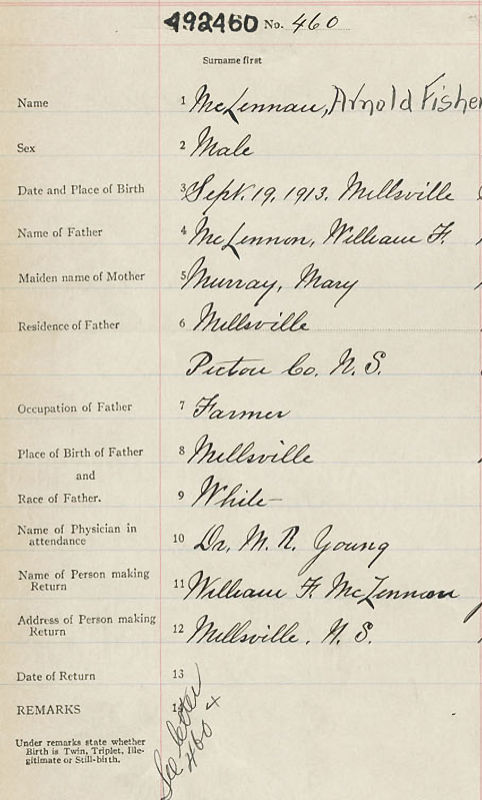 492460 No. 460
Surname first
Name 1 McLennan, Arnold Fisher
Sex 2 Male
Date and Place of Birth 3 Sept. 19, 1913. Millsville
Name of Father 4 McLennon, William F.
Maiden name of Mother 5 Murray, Mary
Residence of Father 6 Millsville
Pictou Co. N. S.
Occupation of Father 7 Farmer
Place of Birth of Father 8 Millsville
and
Race of Father. 9 White
Name of Physician in
attendance 10 Dr. M. R. Young
Name of Person making
Return 11 William F. McLennan
Address of Person making
Return 12 Millsville. N. S.
Date of Return 13
REMARKS 14
See letter
460 x
Under remarks state whether
Birth is Twin, Triplet, Ille-
gitimate or Still-birth.